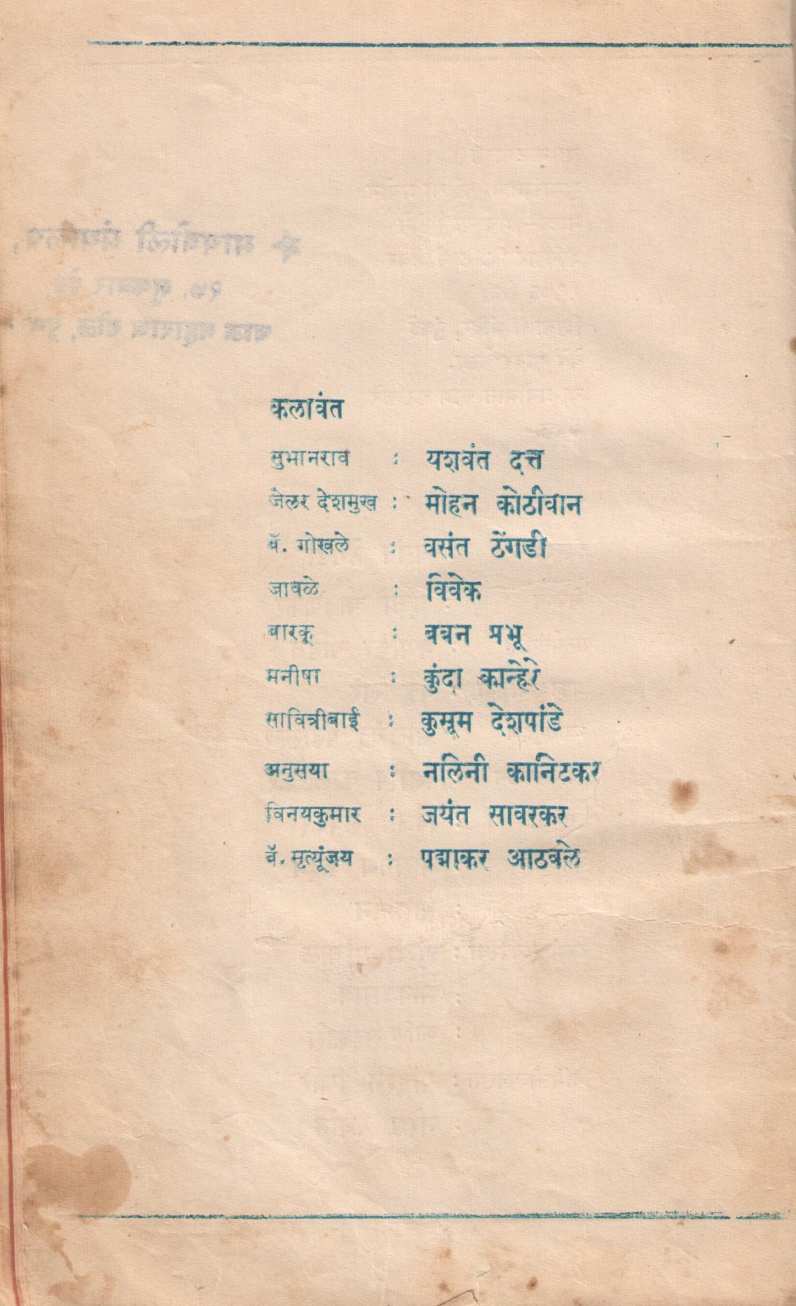 कलावंत
सुभानराव : यशवंत दत्त
जेलर देशमुख : मोहन कोठीवान
बॅ. गोखले : वसंत ठेंगडी
जावळे : विवेक
बारकू : बबन प्रभू
मनीषा : कुंदा कान्हेरे
सावित्रीबाई : कुमूम देशपांडे
अनुसया : नलिनी कानिटकर
विनयकुमार : जयंत सावरकर
बॅ. मृत्यूंजय : पद्माकर आठवले